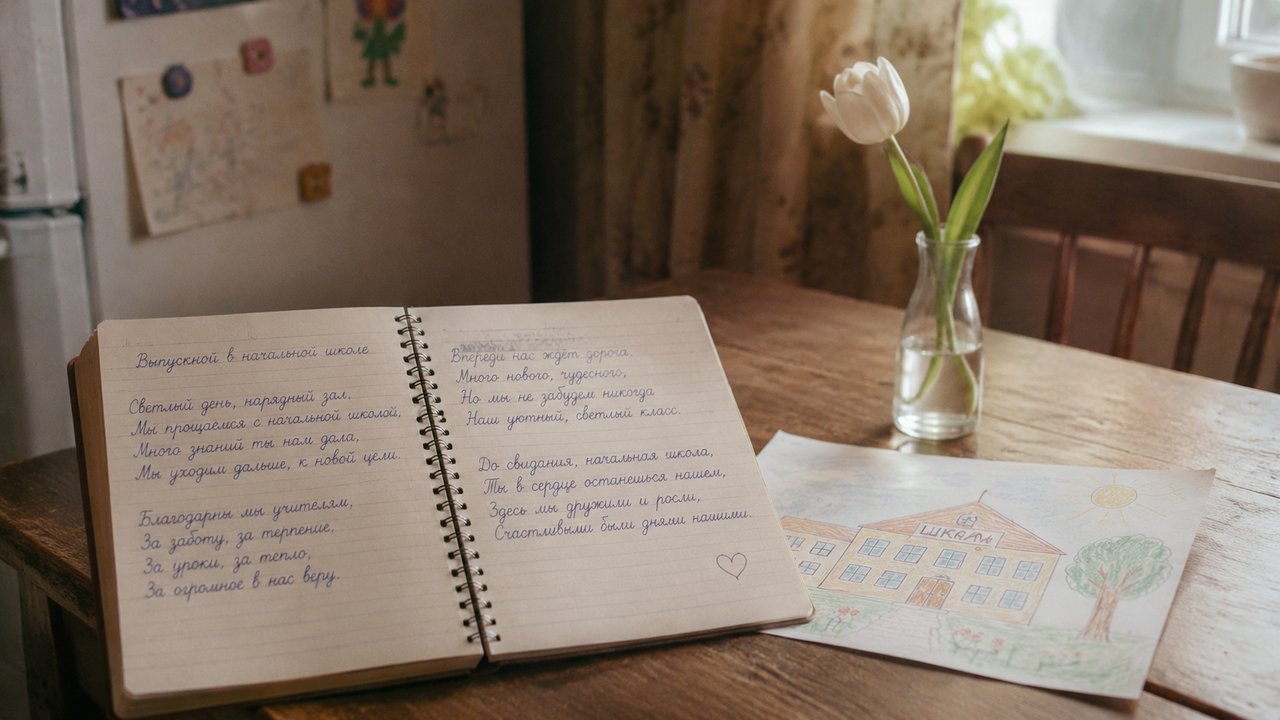 Выпускной в начальной школе
Светлый день, нарядный зал,
Мы прощаемся с начальной школой,
Много знаний ты нам дала,
Мы уходим дальше, к новой цели.
Благодарны мы учителям,
За заботу, за терпение,
За уроки, за тепло,
За огромное в нас веру.
Впереди нас ждёт дорога,
Много нового, чудесного,
Но мы не забудем никогда
Наш уютный, светлый класс.
До свидания, начальная школа,
Ты в сердце останешься нашем,
Здесь мы дружили и росли,
Счастливыми были днями нашими.